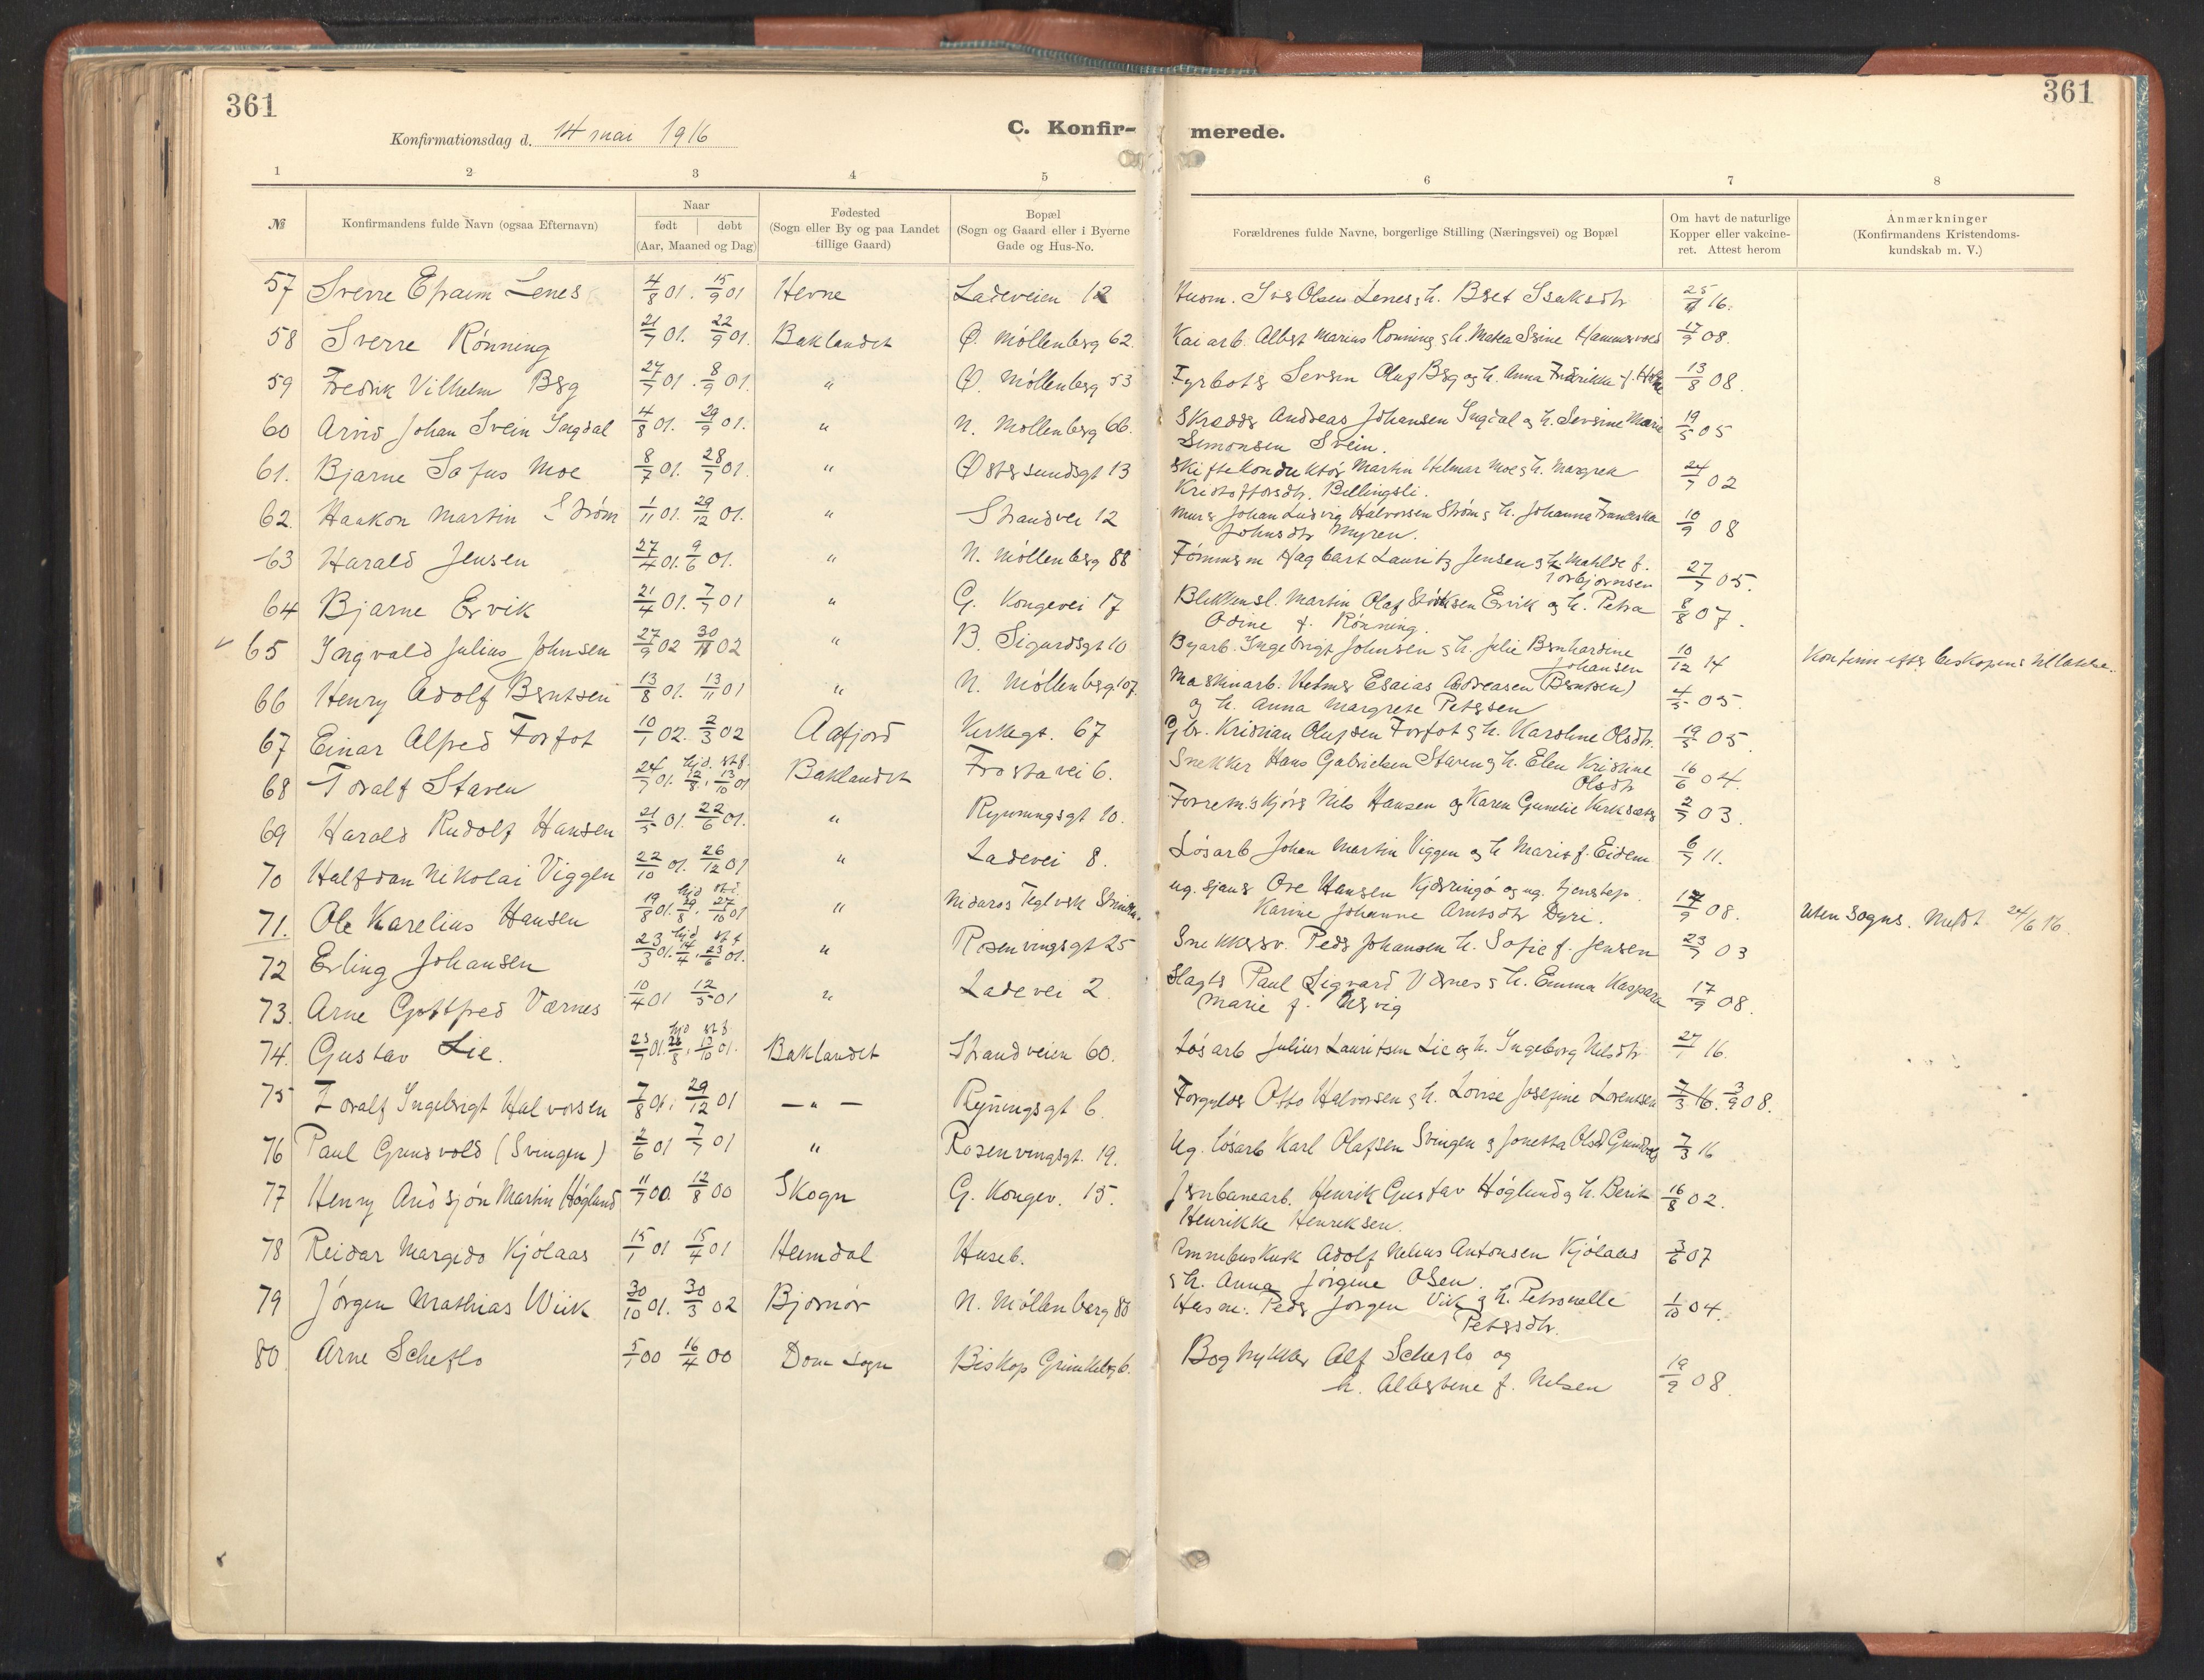 361
361
Konfirmationsdag d. 14 mai 1916
C. Konfir- merede.
1 2 3 4 5 6 7 8
№
Konfirmandens fulde Navn (ogsaa Efternavn)
Naar
født døbt
(Aar, Maaned og Dag)
Fødested
(Sogn eller By og paa Landet
tillige Gaard)
Bopæl
(Sogn og Gaard eller i Byerne
Gade og Hus-No.
Forældrenes fulde Navne, borgerlige Stilling (Næringsvei) og Bopæl
Om havt de naturlige
Kopper eller vakcine-
ret. Attest herom
Anmærkninger
(Konfirmandens Kristendoms-
kundskab m. V.)
57 Sverre Efraim Lenes 4/8 01. 15/9 01 Hevne Ladeveien 12 Husm. Olsen Lenes h. Isaksdtr 16.
58 Sverre Rønning 21/7 01. 22/9 01. Baklandet Ø. Møllenberg 62. Kaiarb. Albert Marius Rønning h. 17/9 08.
59 Fredrik Vilhelm Berg 27/7 01. 8/9 01. " Ø. Møllenberg 53 Fyrbøter Olaf Berg og h. Anna Fredrikke f. 13/8 08.
60 Arvid Johan Svein Ingdal 4/8 01. 29/9 01. " N. Møllenberg 66. Skrædder Andreas Johansen Ingdal og h. Severine Marie 19/5 05
Simonsen Svein.
61. Bjarne Sofus Moe 8/7 01. 28/7 01. " Østersundsgt 13 Skiftekonduktør Martin Hilmar Moe h. Margrete 24/7 02
Kristoffersdtr. Billingsli.
62. Haakon Martin Strøm 1/11 01. 29/12 01. " Strandvei 12 Murer Johan Ludvig Halvorsen Strøm h. Johanna Franciska 10/9 08
Johnsdtr Myren.
63 Harald Jensen 27/4 01. 9/6 01. " N. Møllenberg 88 Tømmerm Hagbart Lauritz Jensen og h. Mathilde f. 27/7 05.
Torbjørnsen
64 Bjarne Ervik 21/4 01. 7/7 01 " G. Kongevei 17 Blikkensl. Martin Olaf Ervik og h. Petra 8/8 07.
Odine f. Rønning.
65 Ingvald Julius Johnsen 27/9 02 30/11 02 " B. Sigurdsgt 10 Byarb. Ingebrigt Johnsen h. Julie Bernhardine 10/12 14 Konfirm. efter biskopens tillatelse.
Johansen
66 Henry Adolf Berntsen 13/8 01. 13/11 01 " N. Møllenberg 107. Maskinarb. Helmer Esaias Andreasen (Berntsen) 4/5 05.
og h. Anna Margrete Petersen
67 Einar Alfred Forfot 10/1 02. 2/3 02 Aafjord Kirkegt. 67 Gbr. Kristian Olufsen Forfot h. Karoline Olsdtr. 19/5 05
68 Toralf Staven 24/7 01. hjd. 12/8. stf. 13/10 01 Baklandet Frostavei 6. Snekker Hans Gabrielsen Staven h. Elen Kristine 16/6 04.
Olsdtr
69 Harald Rudolf Hansen 21/5 01. 22/6 01. " Rynningsgt 10. Nils Hansen og Karen 2/7 03.
70 Halfdan Nikolai Viggen 22/10 01. 26/12 01 " Ladevei 8. Løsarb Johan Martin Viggen og h Marie f. Eidem 6/7 11.
71. Ole Karelius Hansen 19/8 01. hjd 29/8. 27/10 01 " Nidaros Teglverk ug. sjauer Ove Hansen og ug. tjenstep. 17/9 08. Uten sogns. Meldt 24/6 16.
Karine Johanne Arntsdtr Dyri.
72 Erling Johansen 23/3 01. hjd 14/4. stf 23/6 01. " Rosenvingsgt 25 Snekkersv. Peder Johansen h. Sofie f. Jensen 23/7 03
73. Arne Gottfred Værnes 10/4 01 12/5 01 " Ladevei 2 Slagter Paul Sigvard Værnes h. Emma Kaspara 17/9 08.
Marie f.
74. Gustav Lie. 23/7 01. hjd 26/8. stf 13/10 01. Baklandet Strandveien 60. Løsarb Julius Lauritsen Lie og h. Ingeborg Nilsdtr 27/1 16.
75 Toralf Ingebrigt Halvorsen 7/8 01. 29/12 01 — " — Rynningsgt 6. Forgylder Otto Halvorsen h. Lovise Josefine Lorentsen 7/3 16. 3/9 08.
76 Paul Grindvold (Svingen) 2/6 01 7/7 01 " Rosenvingsgt. 19. Ug. løsarb Karl Olafsen Svingen og Jonetta 7/3 16
77 Henry Martin Höglund 11/7 00 12/8 00 Skogn G. Kongev. 15. Jernbanearb. Henrik Gustav Höglund h. Berit 16/8 02.
Henrikke Henriksen.
78 Reidar Margido Kjølaas 15/1 01 15/4 01 Heimdal Huseb. Omnibuskusk Adolf Antonsen Kjølaas 3/6 07
h. Anna Jørgine Olsen.
79 Jørgen Mathias Wiik 30/10 01. 30/3 02 Bjørnør N. Møllenberg 80 Husm. Peder Jørgen Vik h. Petronelle 1/10 04.
Petersdtr.
80. Arne Scheflo 5/1 00 16/4 00 Dom Sogn Biskop 6. Bogtrykker Alf Scheflo og 19/9 08.
h. Albertine f. Nilsen